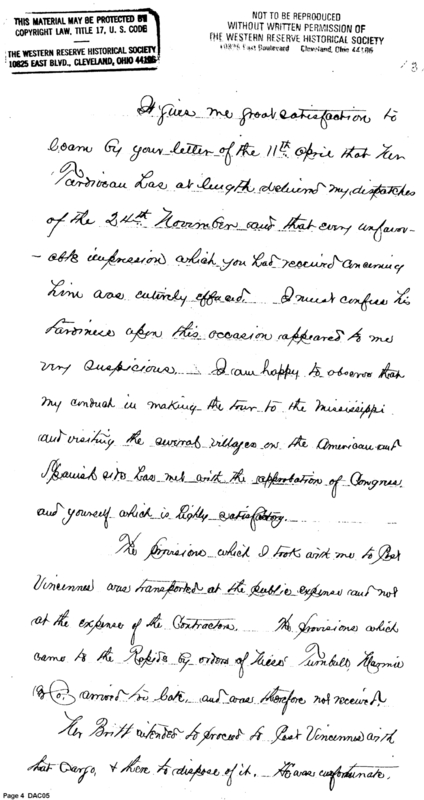 THIS MATERIAL MAY BE PROTECTED BY
COPYRIGHT LAW, TITLE 17, U. S. CODE
THE WESTERN RESERVE HISTORICAL SOCIETY
10825 EAST BLVD., CLEVELAND, OHIO 44106
NOT TO BE REPRODUCED
WITHOUT WRITTEN PERMISSION OF
THE WESTERN RESERVE HISTORICAL SOCIETY
10825 East Boulevard Cleveland, Ohio 44106
3
It gives me great satisfaction to
learn by your letter of the 11th April that Mr
Tardiveau has at length delivered my dispatches
of the 24th November and that every unfavor-
-able impression which you had received concerning
him was entirely effaced. I must confess his
tardiness upon this occasion appeared to me
very suspicious. I am happy to observe that
my conduct in making the tour to the Mississippi
and visiting the several villages on the American and
Spanish side has met with the approbation of Congress
and yourself which is highly satisfactory.
The provisions which I took with me to Post
Vincennes was transported at the public expense and not
at the expense of the Contractors. The provisions which
came to the Rapids by orders of Messrs Turnbull, Marmie
& Co. arrived too late, and was therefore not received.
Mr Britt intended to proceed to Post Vincennes with
that cargo, & there to dispose of it. He was unfortunate.
Page 4 DAC05